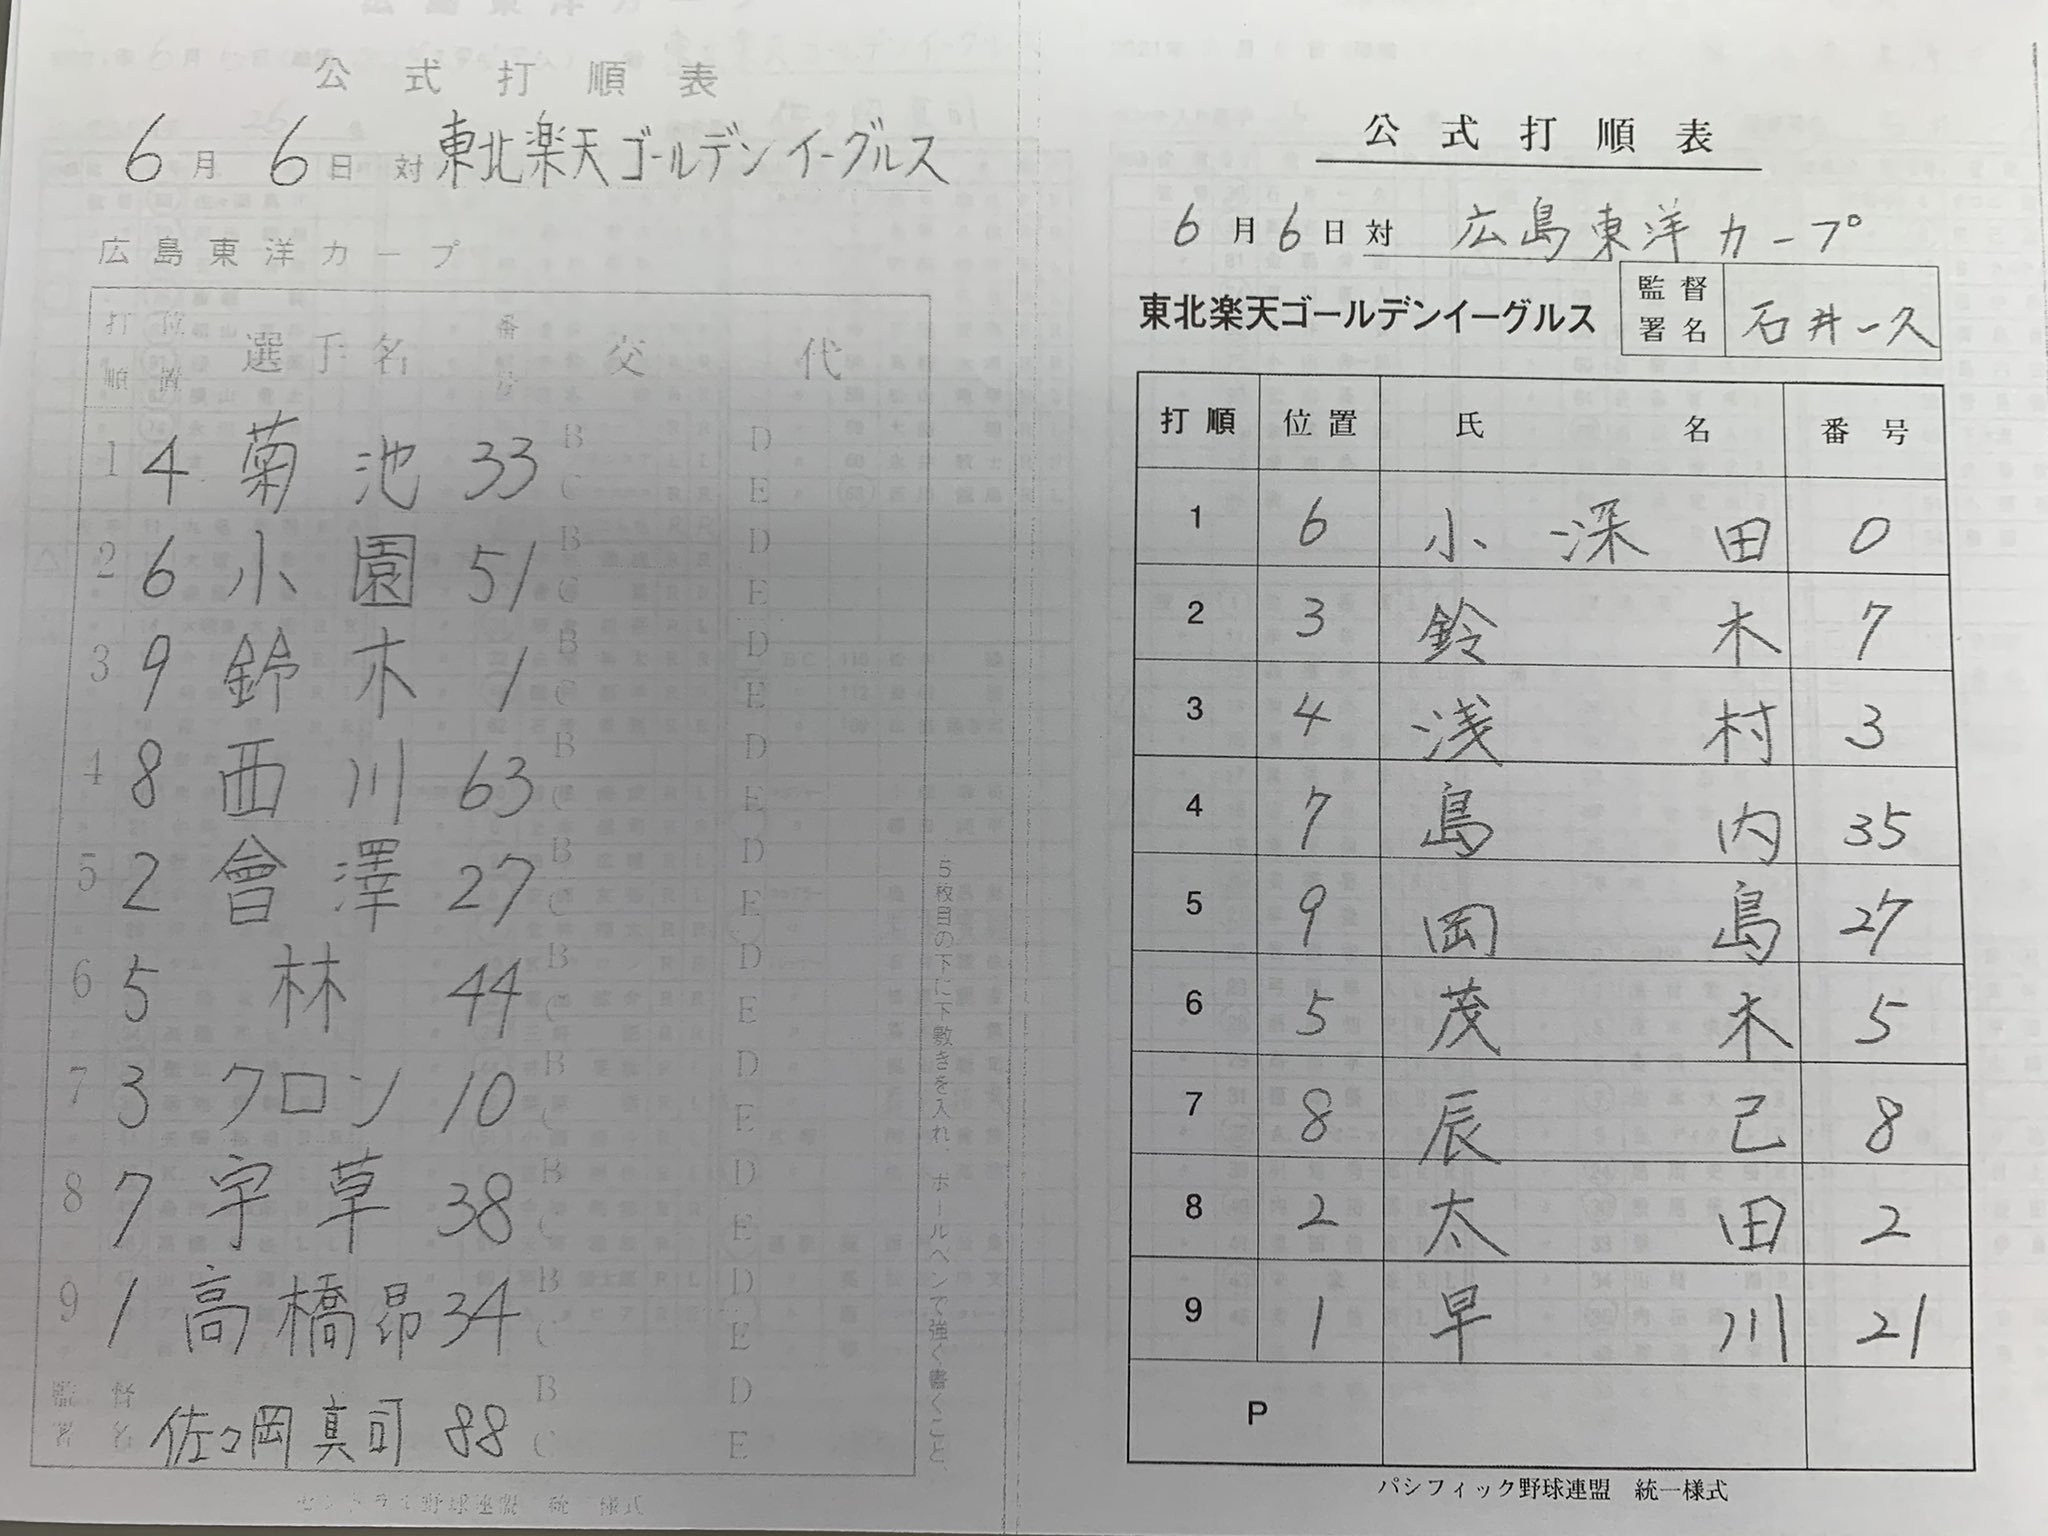 公式打順表
6月6日対東北楽天ゴールデンイーグルス
広島東洋カープ
打順 位置 選手名 番号 交代
1 4 菊池 33 B C D E
2 6 小園 51 B C D E
3 9 鈴木 1 B C D E
4 8 西川 63 B C D E
5 2 會澤 27 B C D E
6 5 林 44 B C D E
7 3 クロン 10 B C D E
8 7 宇草 38 B C D E
9 1 高橋昂 34 B C D E
監督署名 佐々岡真司 88 B C D E
5枚目の下に下敷きを入れ、ボールペンで強く書くこと、
セントラル野球連盟 統一様式
公式打順表
6月6日対 広島東洋カープ
東北楽天ゴールデンイーグルス 監督署名 石井一久
打順 位置 氏名 番号
1 6 小深田 0
2 3 鈴木 7
3 4 浅村 3
4 7 島内 35
5 9 岡島 27
6 5 茂木 5
7 8 辰己 8
8 2 太田 2
9 1 早川 21
P
パシフィック野球連盟 統一様式